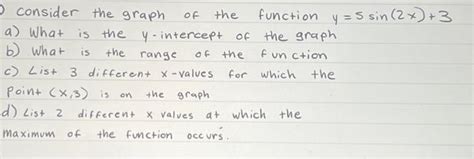 consider the graph of the function y = 5 sin(2x)+3
a) What is the y-intercept of the graph
b) What is the range of the function
c) List 3 different x-values for which the
point (x,3) is on the graph
d) List 2 different x values at which the
maximum of the function occurs.